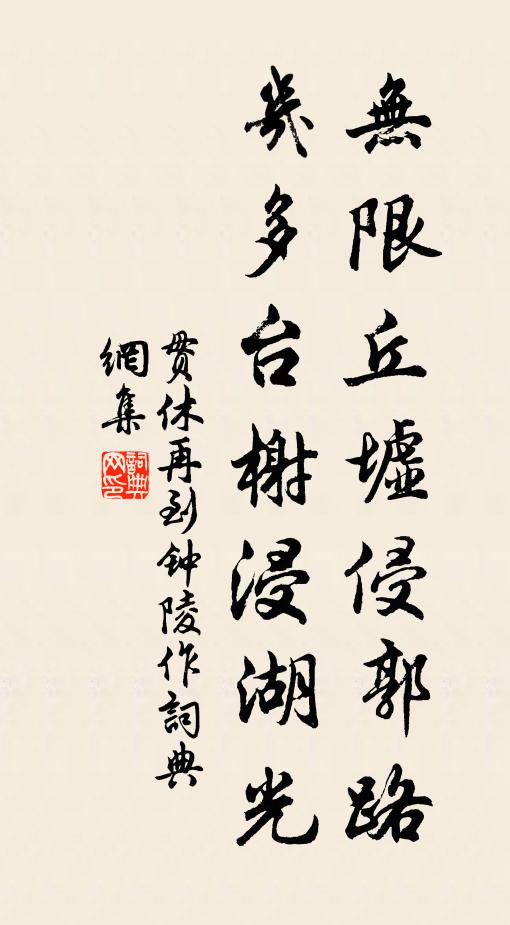 無限丘墟侵郭路
幾多台榭浸湖光
贯休再到钟陵作詞典
網集
詞典網印